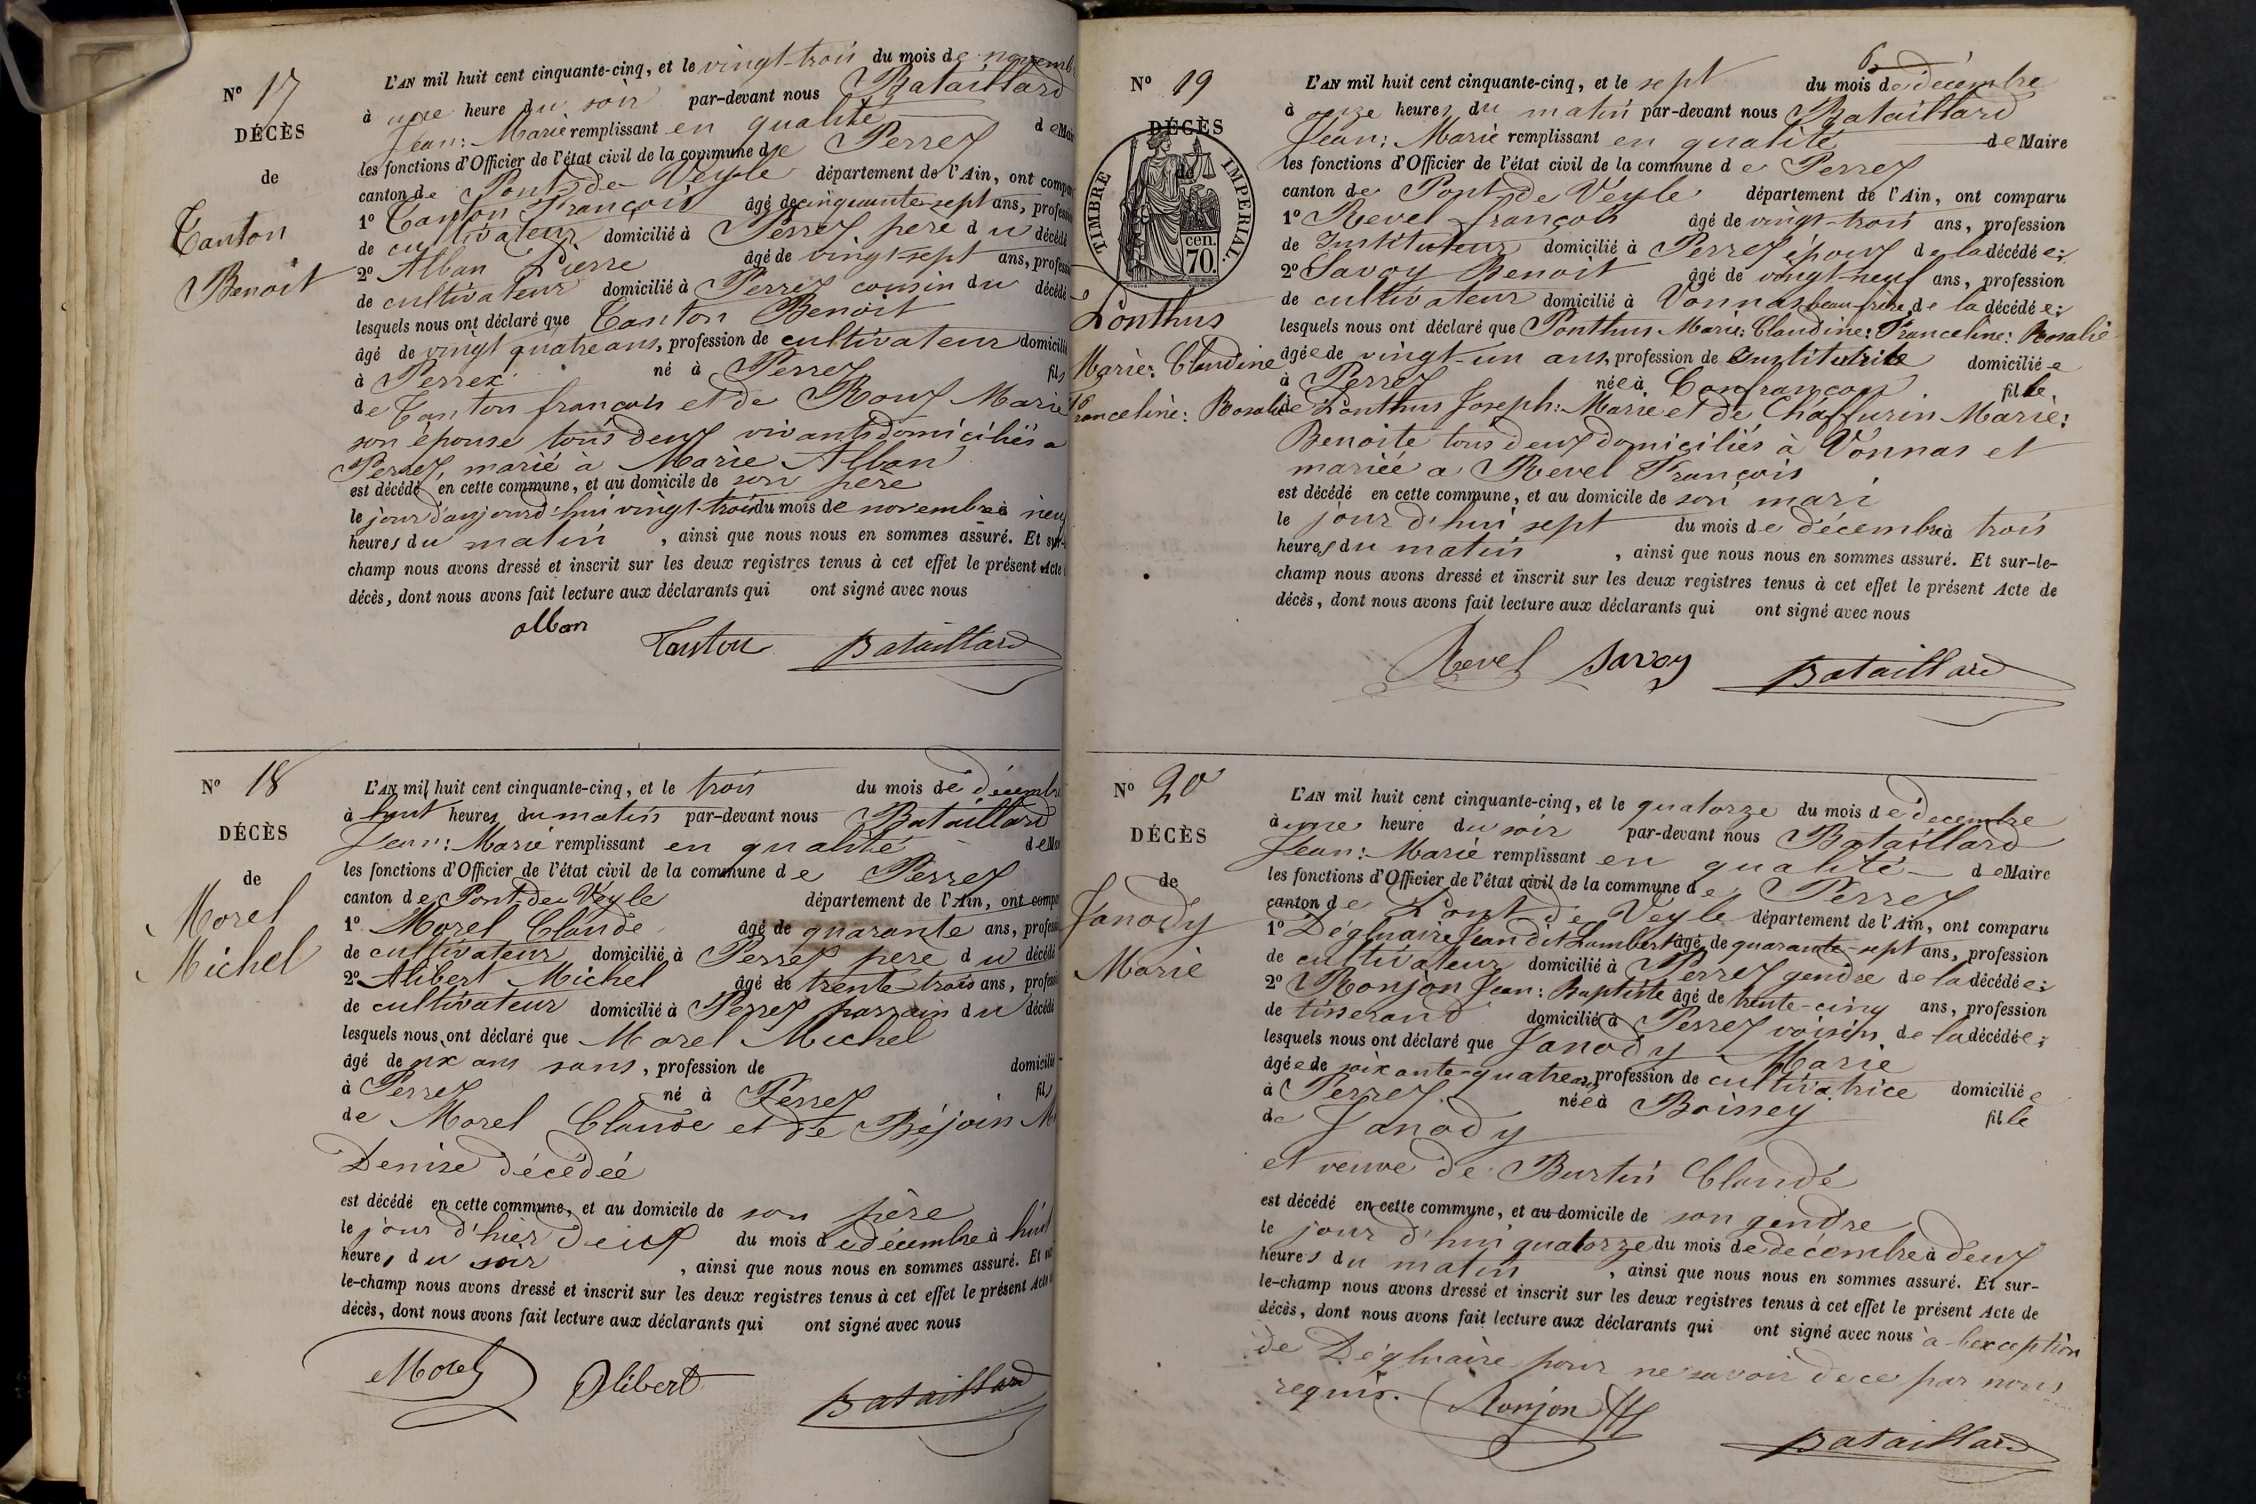 N° 17
DÉCÈS
de
Tanton
Benoit
L'AN mil huit cent cinquante-cinq, et le vingt-trois du mois de novemb
à une heure du soir par-devant nous Bataillard
Jean: Marie remplissant en qualité de Mair
les fonctions d'Officier de l'état civil de la commune de Perrex
canton de Pont de Veyle département de l'Ain, ont compa
1° Tanton François âgé de cinquante-sept ans, profess
de cultivateur domicilié à Perrex père du décédé
2° Alban Pierre âgé de vingt-sept ans, profess
de cultivateur domicilié à Perrex cousin du décédé
lesquels nous ont déclaré que Tanton Benoit
âgé de vingt quatre ans, profession de cultivateur domicilié
à Perrex né à Perrex fils
de Tanton françois et de Roux Marie
son épouse tous deux vivants domiciliés a
Perrex, marié à Marie Alban
est décédé en cette commune, et au domicile de son père
le jour d'aujourd'hui vingt-trois du mois de novembre à neuf
heures du matin , ainsi que nous nous en sommes assuré. Et sur-
champ nous avons dressé et inscrit sur les deux registres tenus à cet effet le présent Acte
décès, dont nous avons fait lecture aux déclarants qui ont signé avec nous
alban Tanton Bataillard
N° 18
DÉCÈS
de
Morel
Michel
L'AN mil huit cent cinquante-cinq, et le trois du mois de décembre
à huit heures du matin par-devant nous Bataillard
Jean: Marie remplissant en qualité de Mai
les fonctions d'Officier de l'état civil de la commune de Perrex
canton de Pont de Veyle département de l'Ain, ont compa
1° Morel Claude âgé de quarante ans, profess
de cultivateur domicilié à Perrex père du décédé
2° Alibert Michel âgé de trente trois ans, profess
de cultivateur domicilié à Perrex parrain du décédé
lesquels nous ont déclaré que Morel Michel
âgé de six ans sans, profession de domicilié
à Perrex né à Perrex fils
de Morel Claude et de Béjoin M
Denise décédée
est décédé en cette commune, et au domicile de son père
le jour d'hier deux du mois de décembre à huit
heures du soir , ainsi que nous nous en sommes assuré. Et sur
le-champ nous avons dressé et inscrit sur les deux registres tenus à cet effet le présent Acte d
décès, dont nous avons fait lecture aux déclarants qui ont signé avec nous
Morel Alibert Bataillard
N° 19
DÉCÈS
de
TIMBRE IMPERIAL.
70. cen.
Ponthus
Marie: Claudine
Franceline: Rosalie
L'AN mil huit cent cinquante-cinq, et le sept du mois de décembre
à onze heures du matin par-devant nous Bataillard
Jean: Marie remplissant en qualité de Maire
les fonctions d'Officier de l'état civil de la commune de Perrex
canton de Pont de Veyle département de l'Ain, ont comparu
1° Revel françois âgé de vingt-trois ans, profession
de Instituteur domicilié à Perrex époux de la décédée:
2° Savoy Benoit âgé de vingt-neuf ans, profession
de cultivateur domicilié à Vonnas beau-frère de la décédée:
lesquels nous ont déclaré que Ponthus Marie: Claudine: Franceline: Rosalie
âgée de vingt-un ans, profession de Institutrice domiciliée
à Perrex née à Confrançon fille
de Ponthus Joseph: Marie et de Chaffurin Marie:
Benoite tous deux domiciliés à Vonnas et
mariéé a Revel François
est décédé en cette commune, et au domicile de son mari
le jour d'hui sept du mois de décembre à trois
heures du matin , ainsi que nous nous en sommes assuré. Et sur-le-
champ nous avons dressé et inscrit sur les deux registres tenus à cet effet le présent Acte de
décès, dont nous avons fait lecture aux déclarants qui ont signé avec nous
Revel Savoy Bataillard
N° 20
DÉCÈS
de
Janody
Marie
L'AN mil huit cent cinquante-cinq, et le quatorze du mois de décembre
à une heure du soir par-devant nous Bataillard
Jean: Marie remplissant en qualité de Maire
les fonctions d'Officier de l'état civil de la commune de Perrex
canton de Pont de Veyle département de l'Ain, ont comparu
1° Dégluaire Jean dit Lambert âgé de quarante-sept ans, profession
de cultivateur domicilié à Perrex gendre de la décédée:
2° Ronjon Jean: Baptiste âgé de trente-cinq ans, profession
de tisserand domicilié à Perrex voisin de la décédée:
lesquels nous ont déclaré que Janody Marie
âgée de soixante-quatre ans profession de cultivatrice domiciliée
à Perrex née à Boissey fille
de Janody
et veuve de Burtin Claude
est décédé en cette commune, et au domicile de son gendre
le jour d'hui quatorze du mois de décembre à deux
heures du matin , ainsi que nous nous en sommes assuré. Et sur-
le-champ nous avons dressé et inscrit sur les deux registres tenus à cet effet le présent Acte de
décès, dont nous avons fait lecture aux déclarants qui ont signé avec nous à l'exception
de Dégluaire pour ne savoir de ce par nous
requis. Ronjon Bataillard